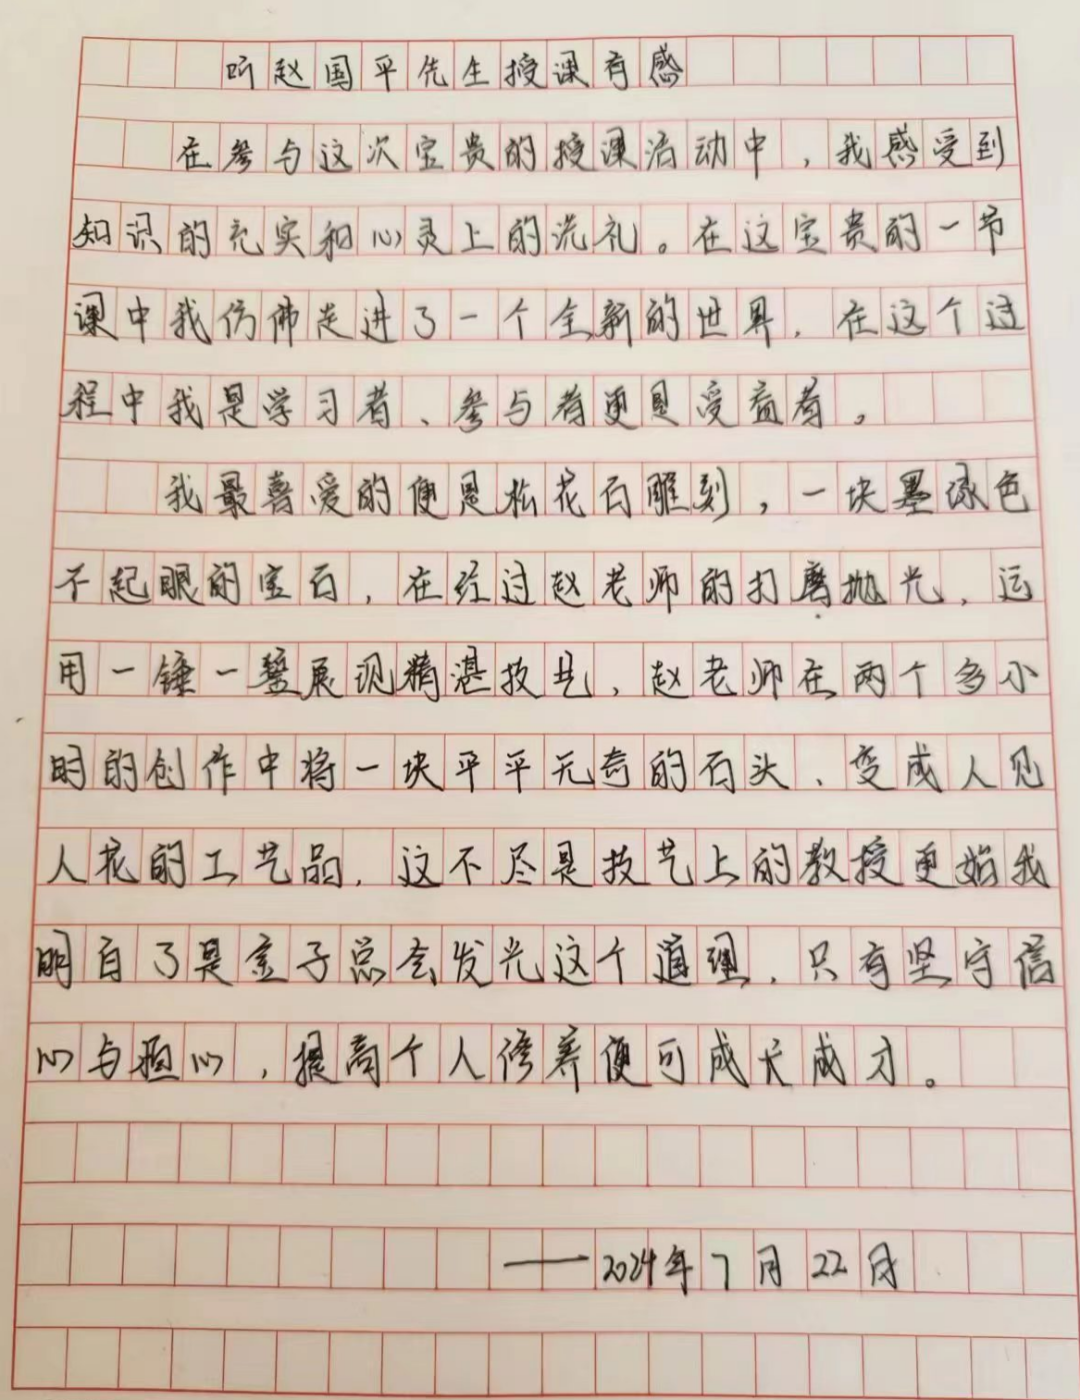 听赵国平先生授课有感
在参与这次宝贵的授课活动中，我感受到
知识的充实和心灵上的洗礼。在这宝贵的一节
课中我仿佛走进了一个全新的世界，在这个过
程中我是学习者、参与者更是受益者。
我最喜爱的便是松花石雕刻，一块墨绿色
不起眼的宝石，在经过赵老师的打磨抛光，运
用一锤一錾展现精湛技艺，赵老师在两个多小
时的创作中将一块平平无奇的石头、变成人见
人花的工艺品，这不尽是技艺上的教授更始我
明白了是金子总会发光这个道理，只有坚守信
心与恒心，提高个人修养便可成长成才。
——2024年7月22日